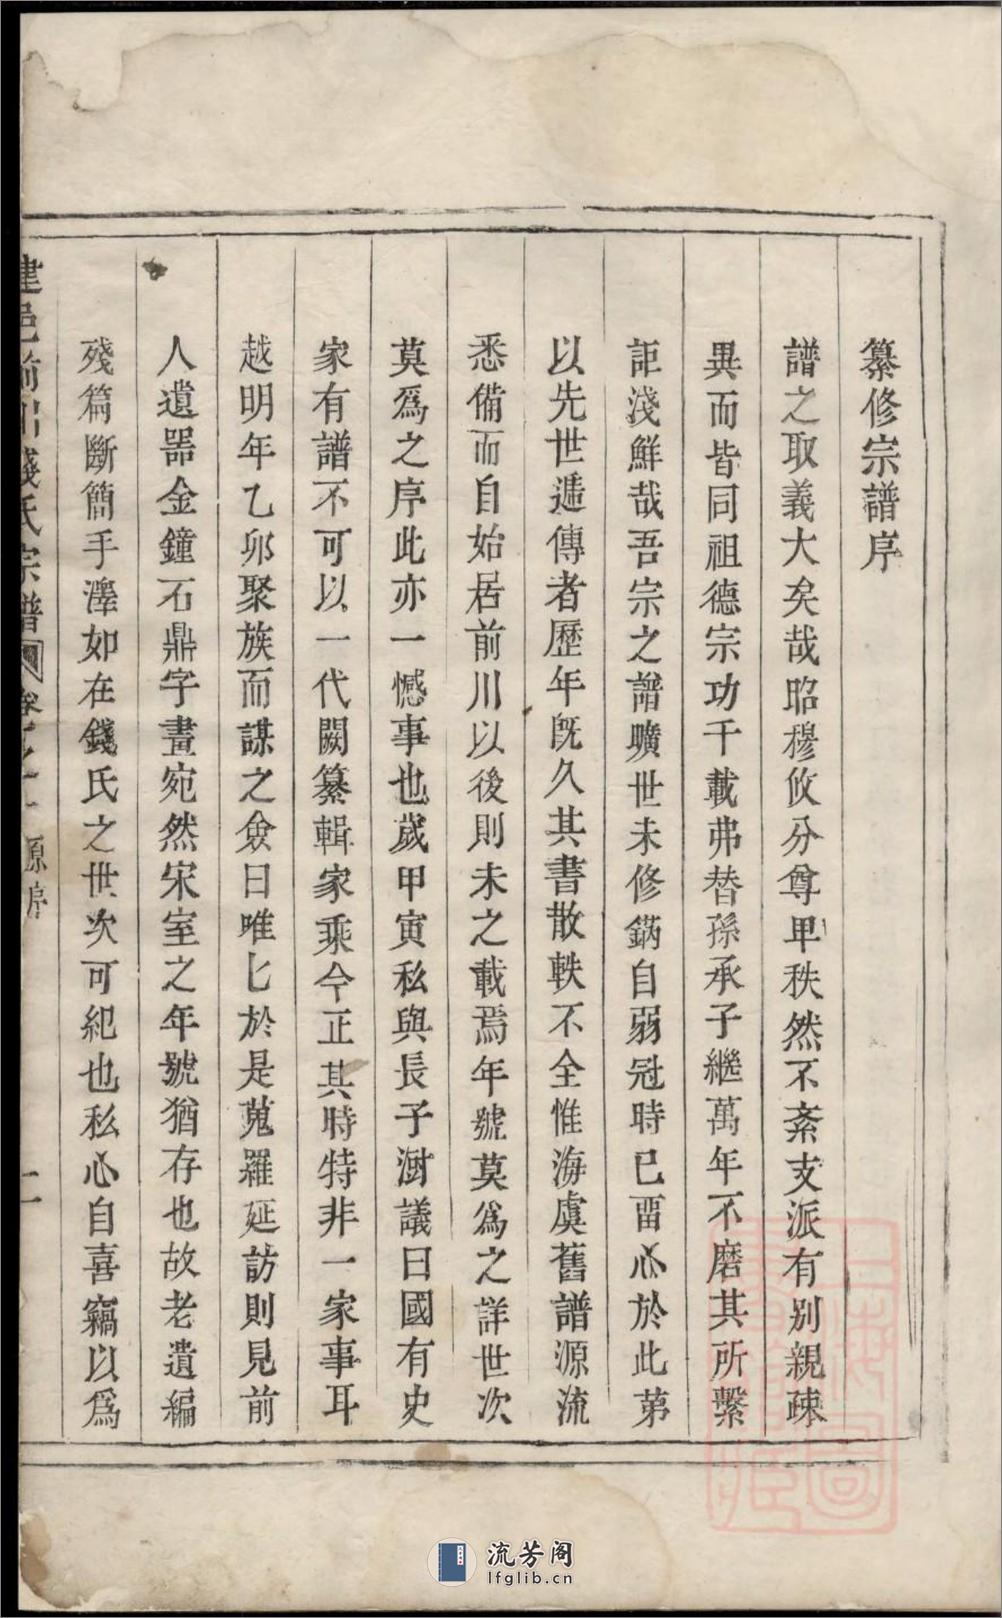 纂修宗譜序
譜之取義大矣哉昭穆攸分尊卑秩然不紊支派有别親疎
異而皆同祖德宗功千載弗替孫承子繼萬年不磨其所繫
詎淺鮮哉吾宗之譜曠世未修鏋自弱冠時已畱心於此第
以先世遞傳者歷年旣久其書散軼不全惟海虞舊譜源流
悉備而自始居前川以後則未之載焉年號莫爲之詳世次
莫爲之序此亦一憾事也歲甲寅私與長子澍議曰國有史
家有譜不可以一代闕纂輯家乘今正其時特非一家事耳
越明年乙卯聚族而謀之僉曰唯匕於是蒐羅延訪則見前
人遺噐金鐘石鼎字畫宛然宋室之年號猶存也故老遺編
殘篇斷簡手澤如在錢氏之世次可紀也私心自喜竊以爲
錢氏宗譜 卷之一 源序 一
上海圖書館藏
流芳阁
lfglib.cn